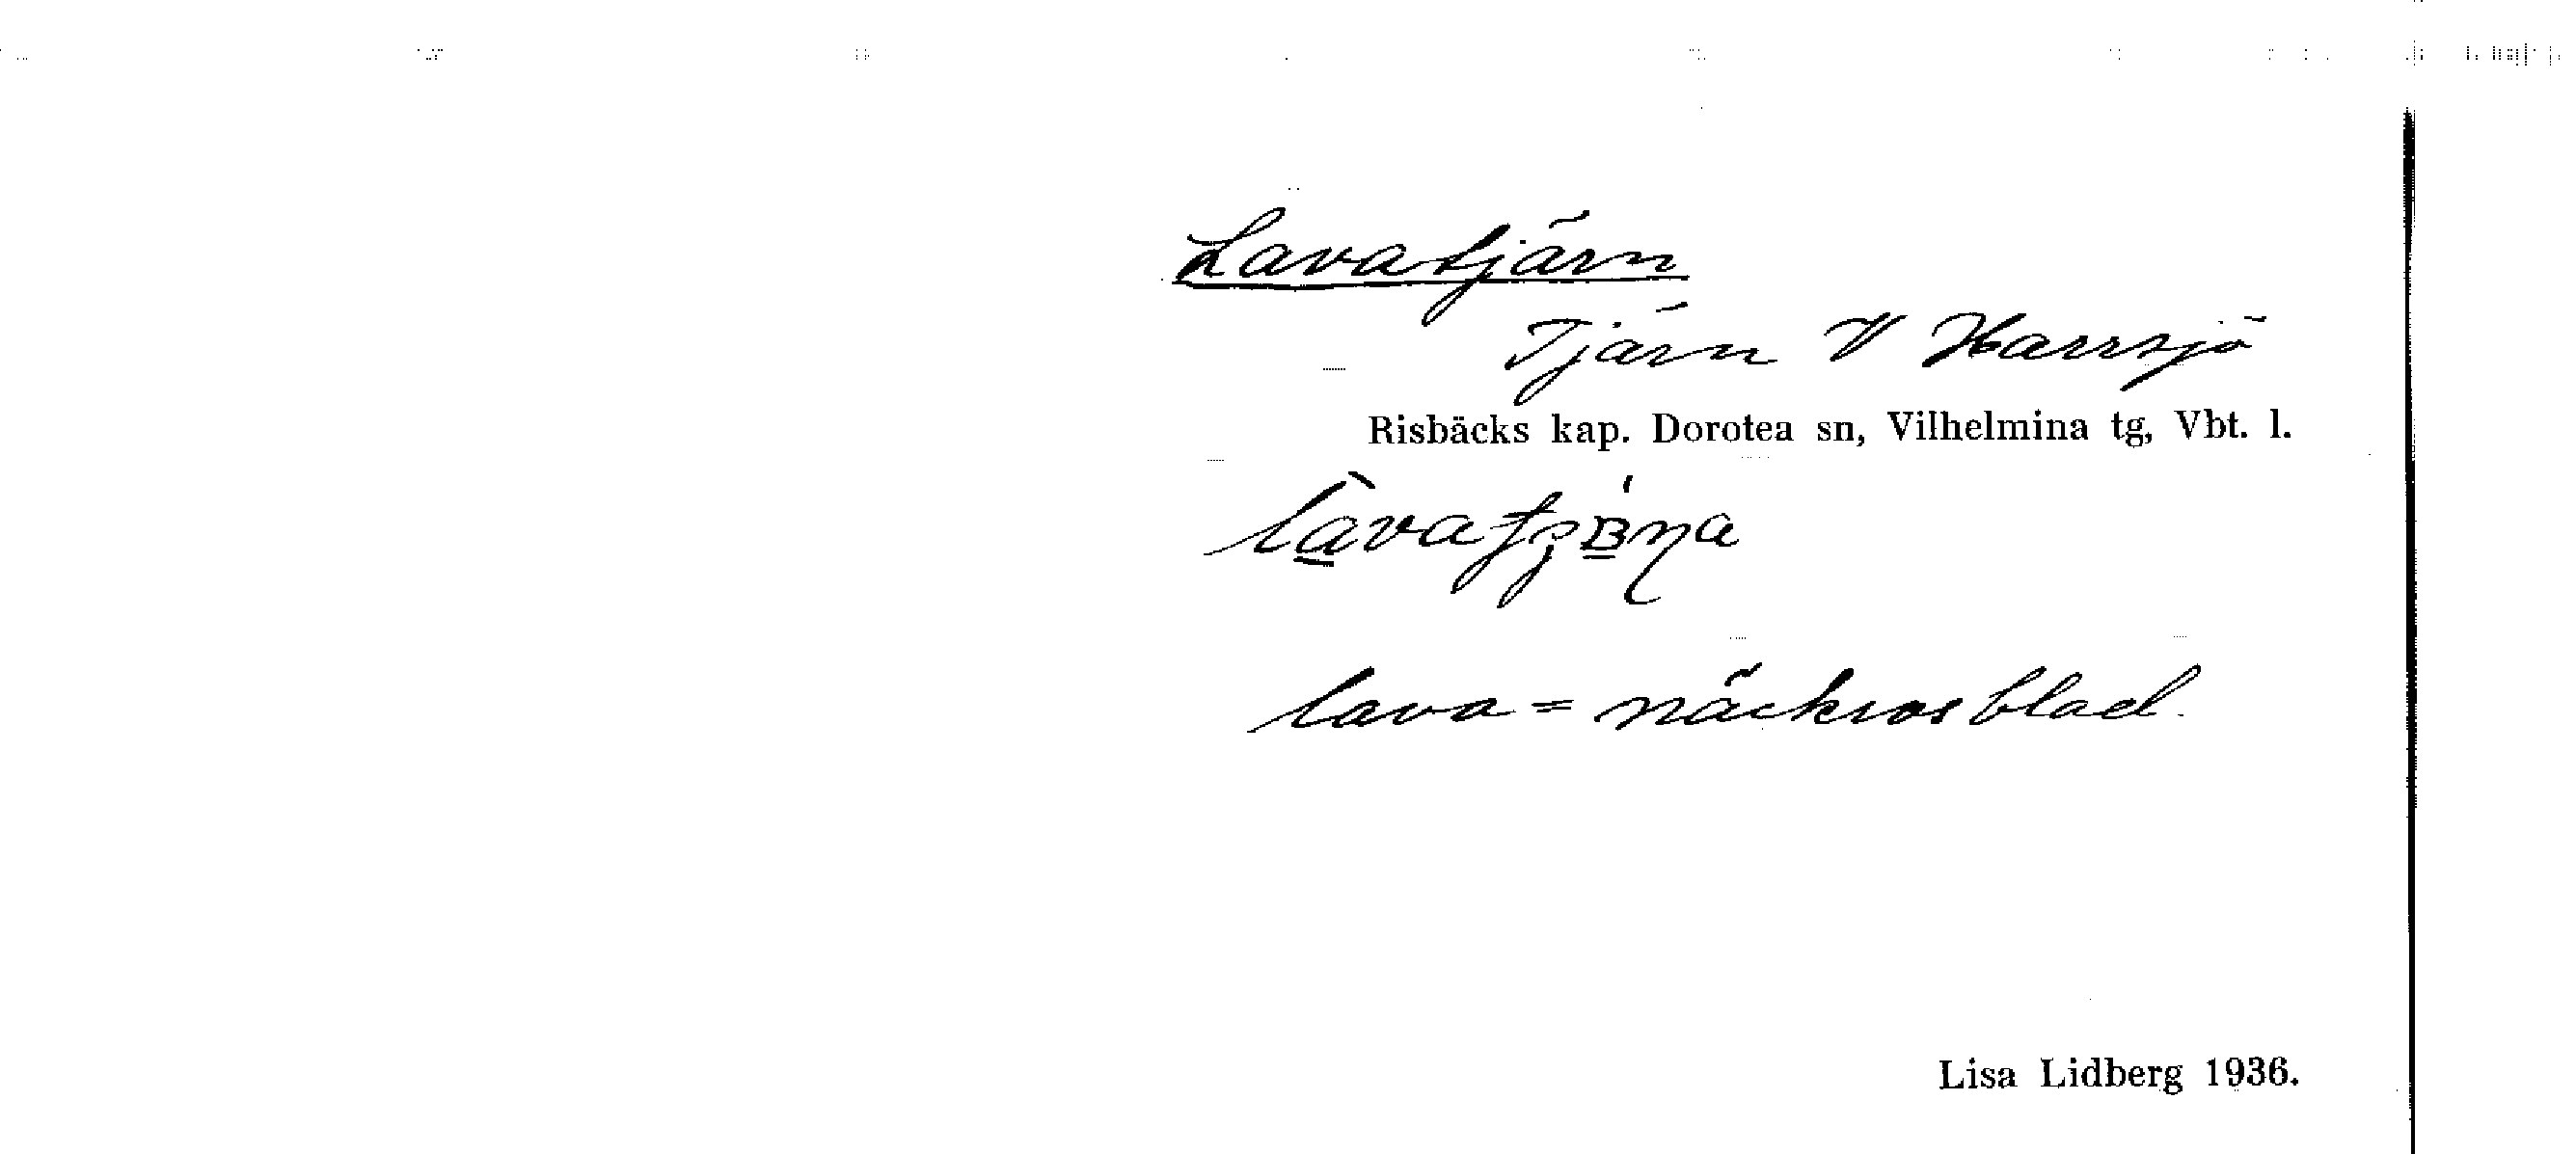 Lavatjärn
Tjärn V Harrsjö
Risbäcks kap. Dorotea sn, Vilhelmina tg, Vbt. l.
lava = näckrosblad.
Lisa Lidberg 1936.